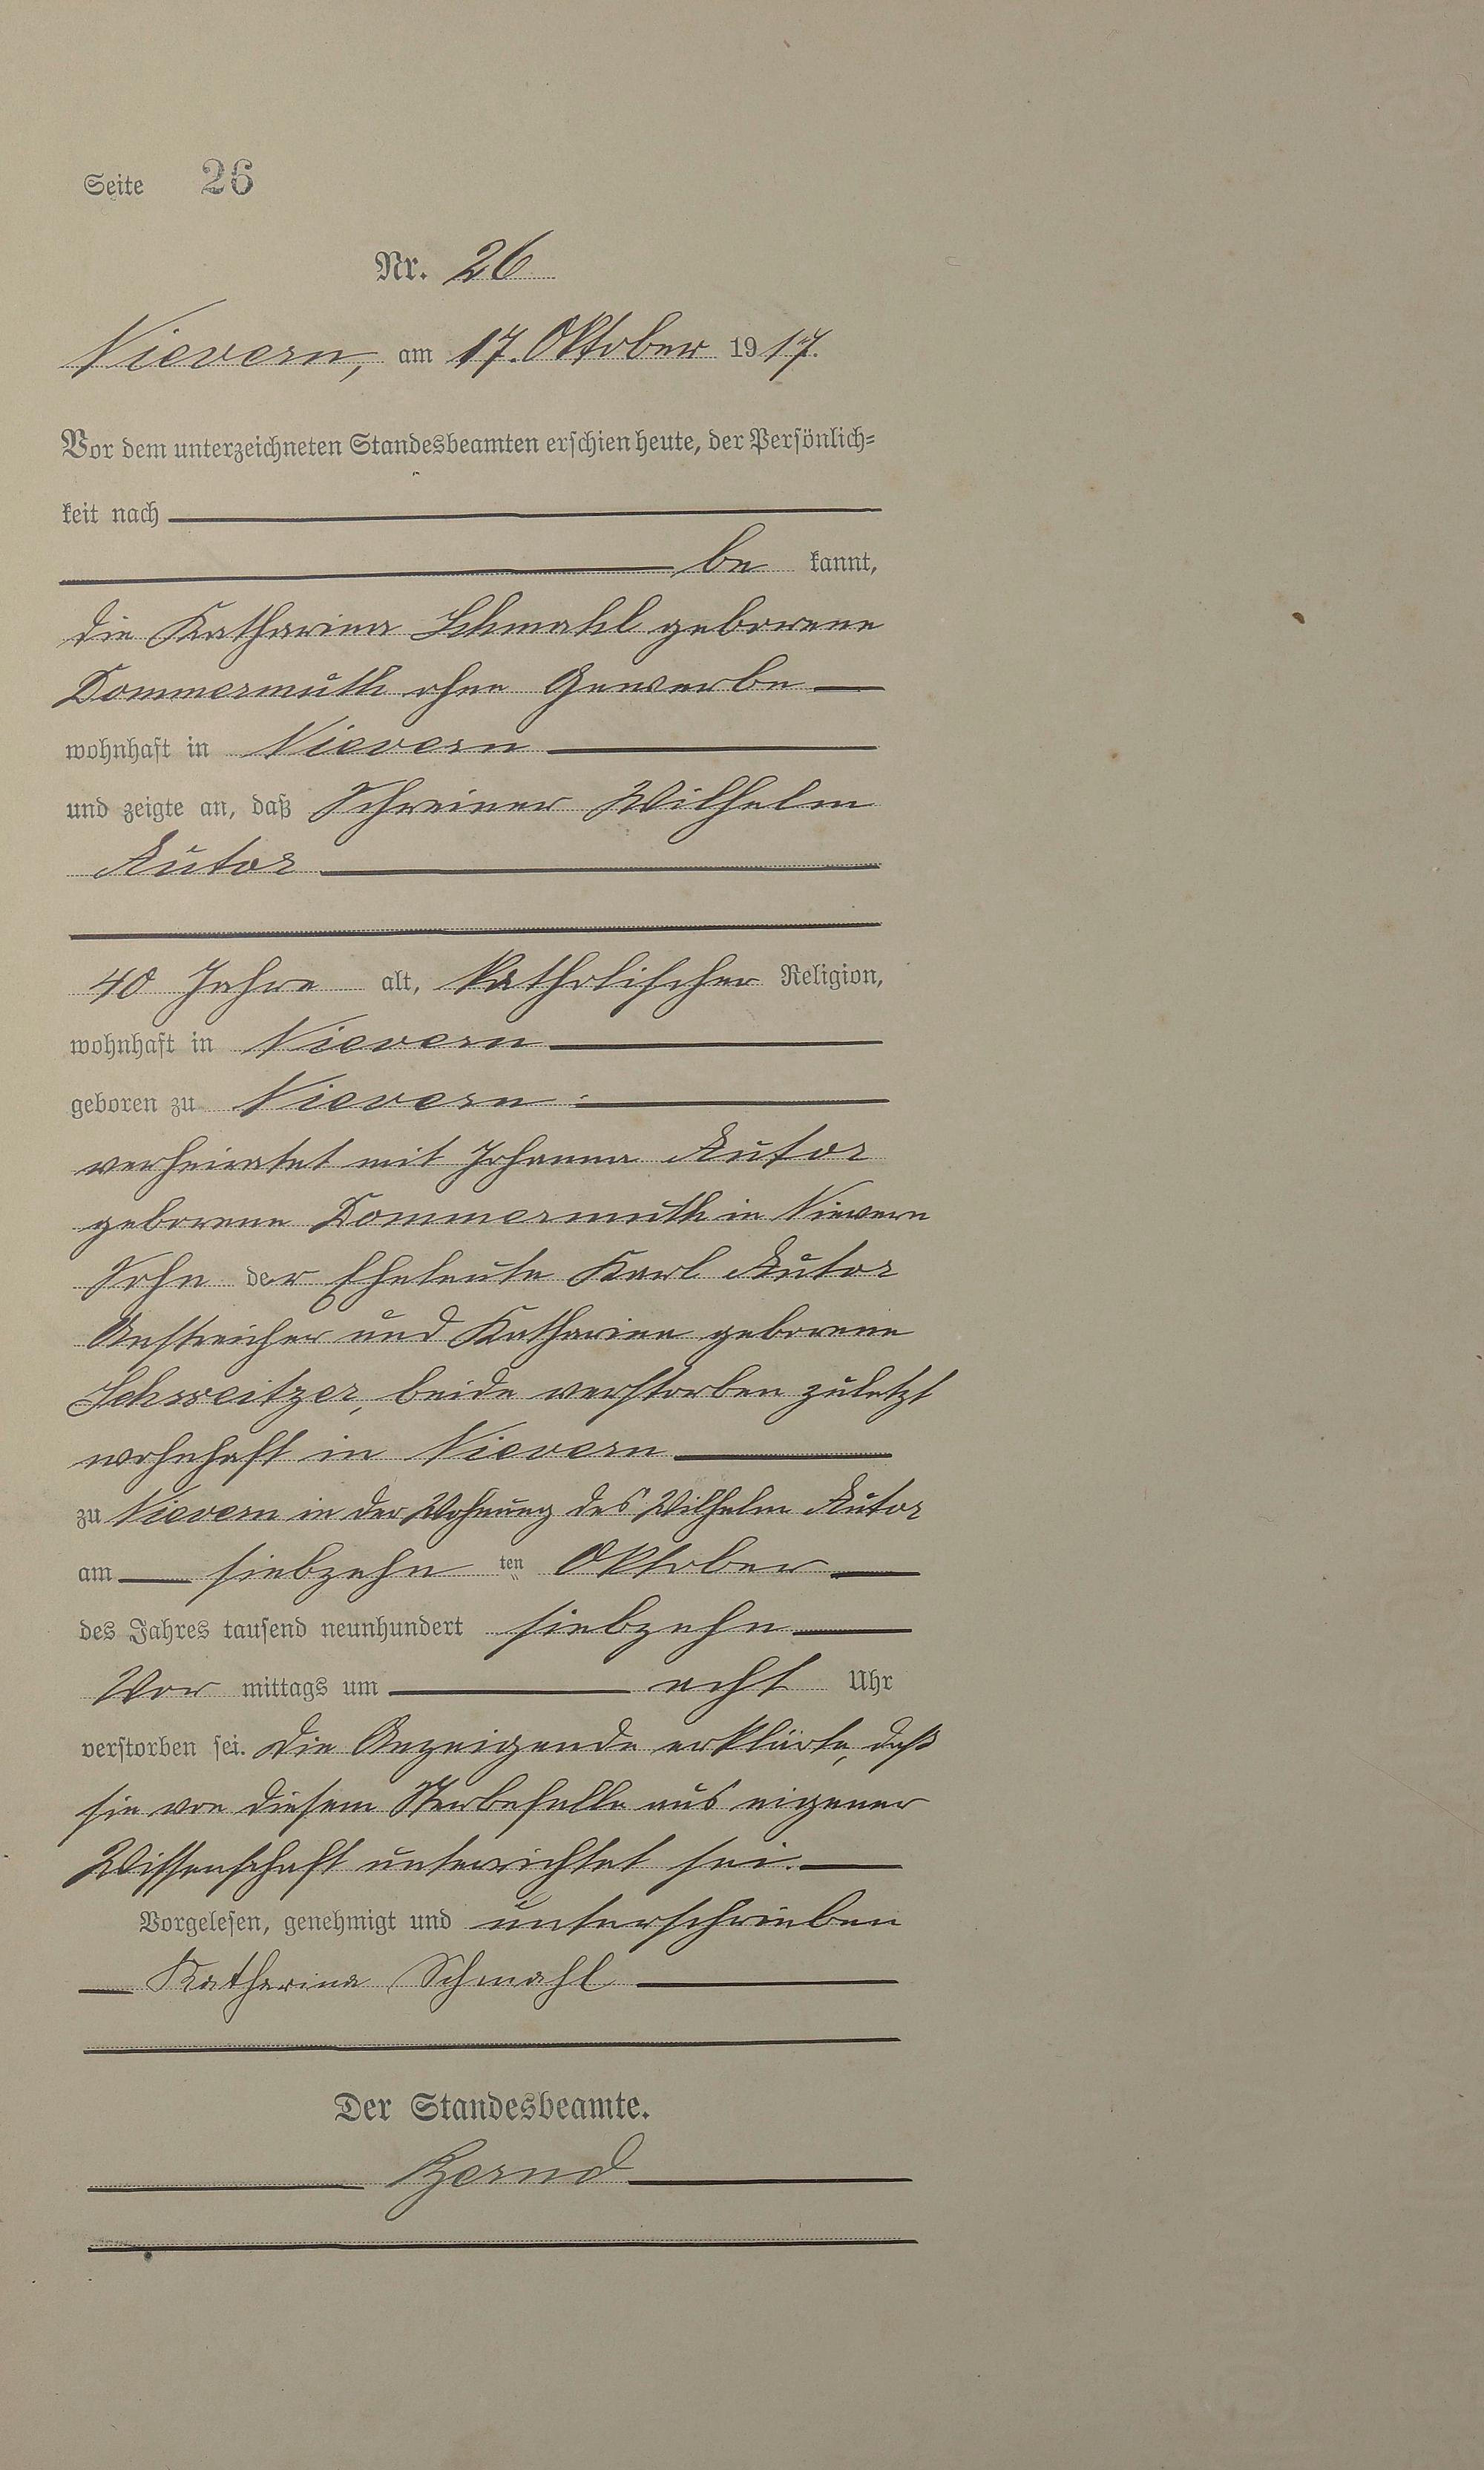 Seite 26
Nr. 26
Nievern, am 17. Oktober 1917.
Vor dem unterzeichneten Standesbeamten erschien heute, der Persönlich=
keit nach
be kannt,
die Katharina Schmahl geborene
Dommermuth ohne Gewerbe
wohnhaft in Nievern
und zeigte an, daß Schreiner Wilhelm
Autor
40 Jahre alt, katholischer Religion,
wohnhaft in Nievern
geboren zu Nievern
verheiratet mit Johanna Autor
geborene Dommermuth in Nievern
Sohn der Eheleute Karl Autor
Anstreicher und Katharina geborene
Schweitzer, beide verstorben zuletzt
wohnhaft in Nievern
zu Nievern in der Wohnung des Wilhelm Autor
am siebzehn ten Oktober
des Jahres tausend neunhundert siebzehn
Vor mittags um acht Uhr
verstorben sei. Die Anzeigende erklärte, daß
sie von diesem Sterbefalle aus eigener
Wissenschaft unterrichtet sei.
Vorgelesen, genehmigt und unterschrieben
Katharina Schmahl
Der Standesbeamte.